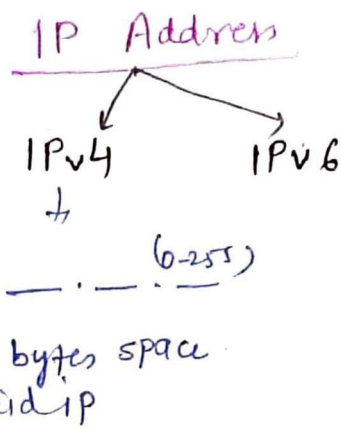 IP Address
IPv4 IPv6
(0-255)
— . — . —
bytes space
id ip